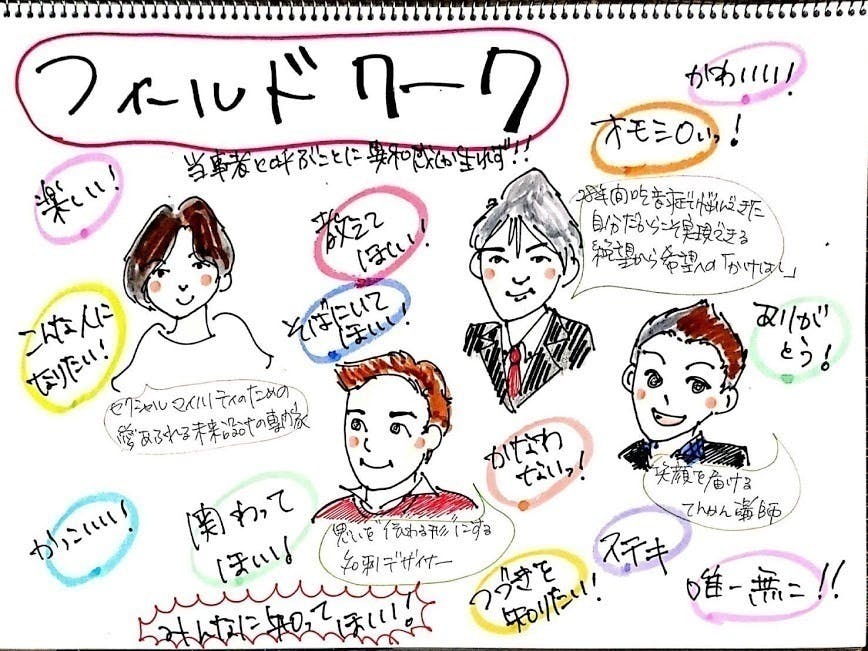 フィールドワーク
当事者と呼ぶことに異和感しか生れず!!
かわいい!
オモシロいっ!
楽しい!
教えて
ほしい!
28年間吃音症で悩んできた
自分だからこそ実現できる
絶望から希望への「かけはし」
こんな人に
なりたい!
そばにいて
ほしい!
ありがとう!
セクシャルマイノリティのための
愛あふれる未来設計の専門家
かなわ
ないっ!
笑顔を届ける
てんかん講師
かっこいい!
関わって
ほしい!
思いを伝わる形にする
名刺デザイナー
つづきを
知りたい!
ステキ
唯一無二!!
みんなに知ってほしい!